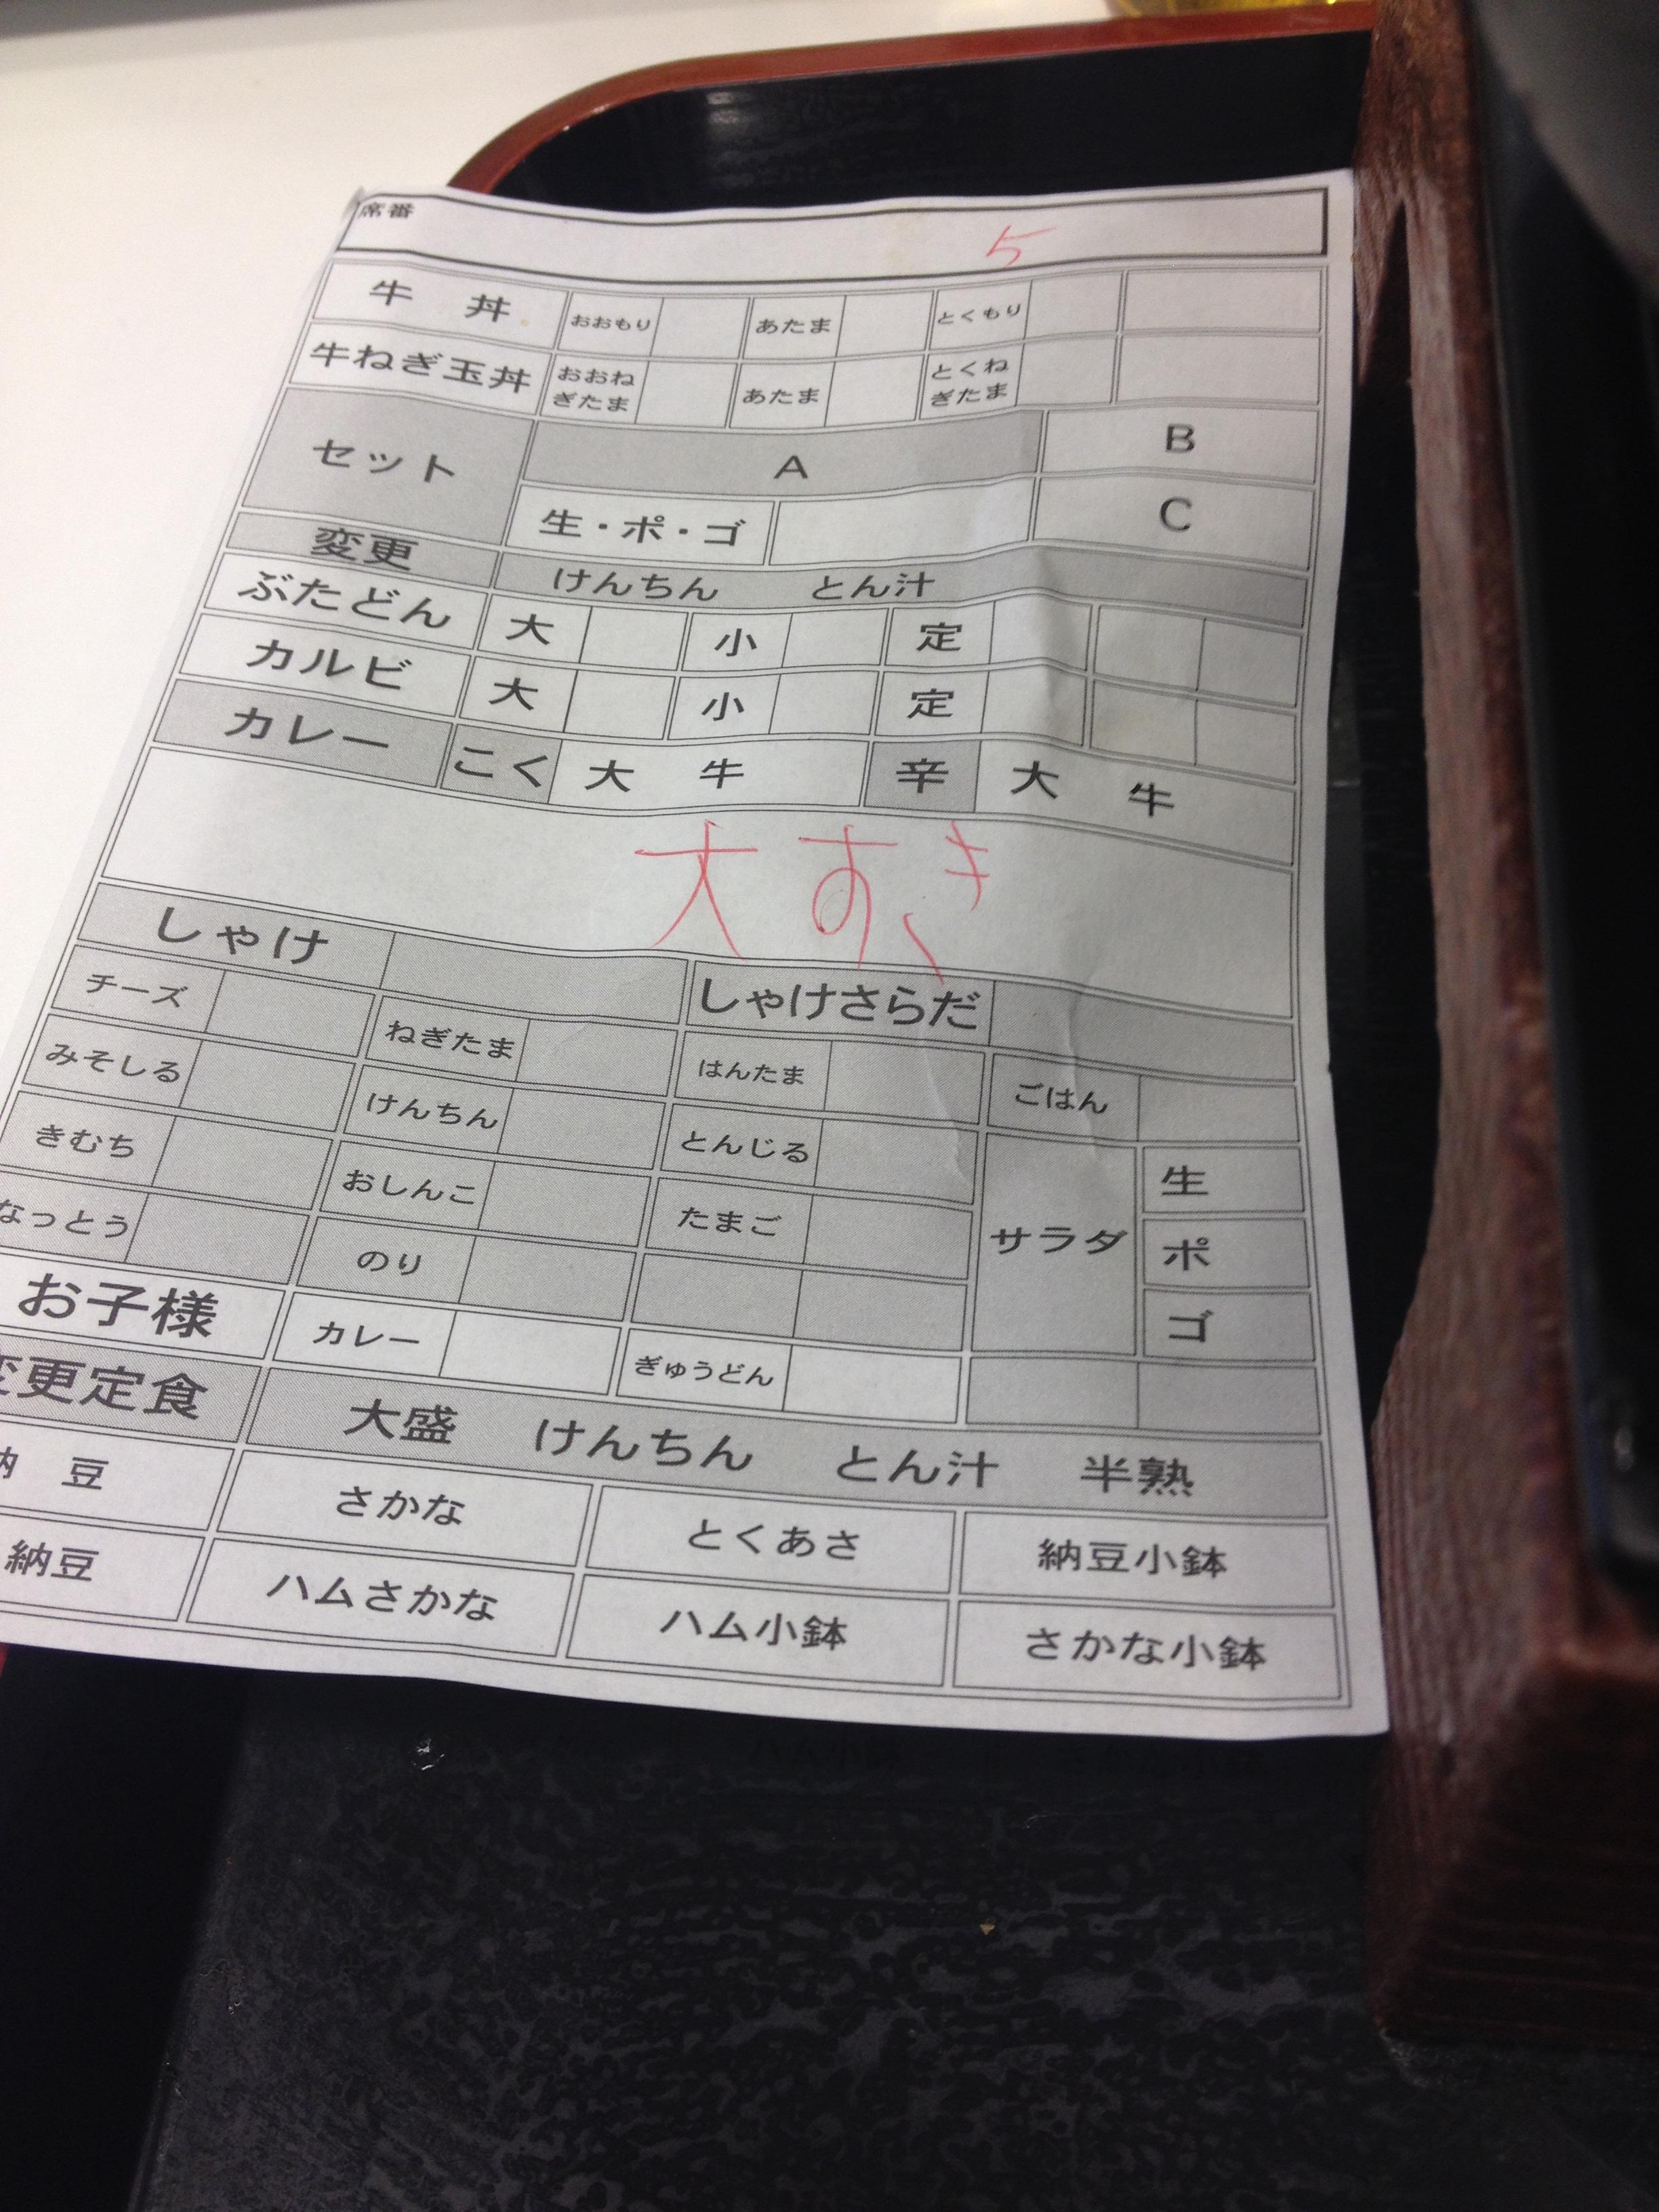 席番 5
牛 丼 おおもり あたま とくもり
牛ねぎ玉丼 おおね ぎたま あたま とくね ぎたま
セット A B
生・ポ・ゴ C
変更 けんちん とん汁
ぶたどん 大 小 定
カルビ 大 小 定
カレー こく 大 牛 辛 大 牛
大すき
しゃけ しゃけさらだ
チーズ ねぎたま はんたま ごはん
みそしる けんちん とんじる サラダ 生
きむち おしんこ たまご ポ
なっとう のり ゴ
お子様 カレー ぎゅうどん
変更定食 大盛 けんちん とん汁 半熟
納 豆 さかな とくあさ 納豆小鉢
納豆 ハムさかな ハム小鉢 さかな小鉢